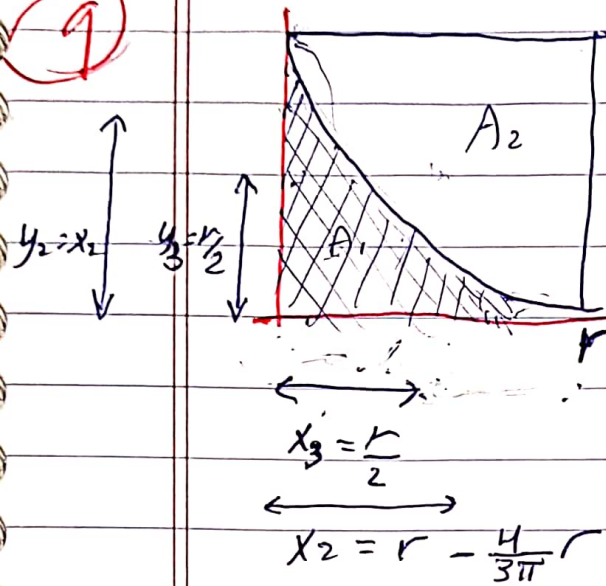 1
A₂
y₂ = x₂
y₃ = r/2
A₁
r
x₃ = r/2
x₂ = r - 4/3π r